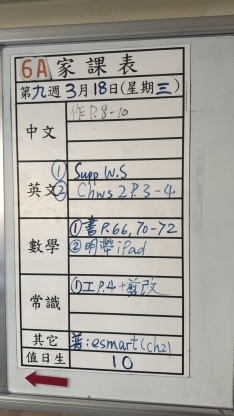 6A 家課表
第九週 3月18日(星期三)
中文 作P.8-10
① Supp W.S
英文② Chws 2 P.3-4
數學 ①書P.66,70-72
②明帶iPad
常識 ①工P.4+剪改
其它 普:esmart(ch2)
值日生 10